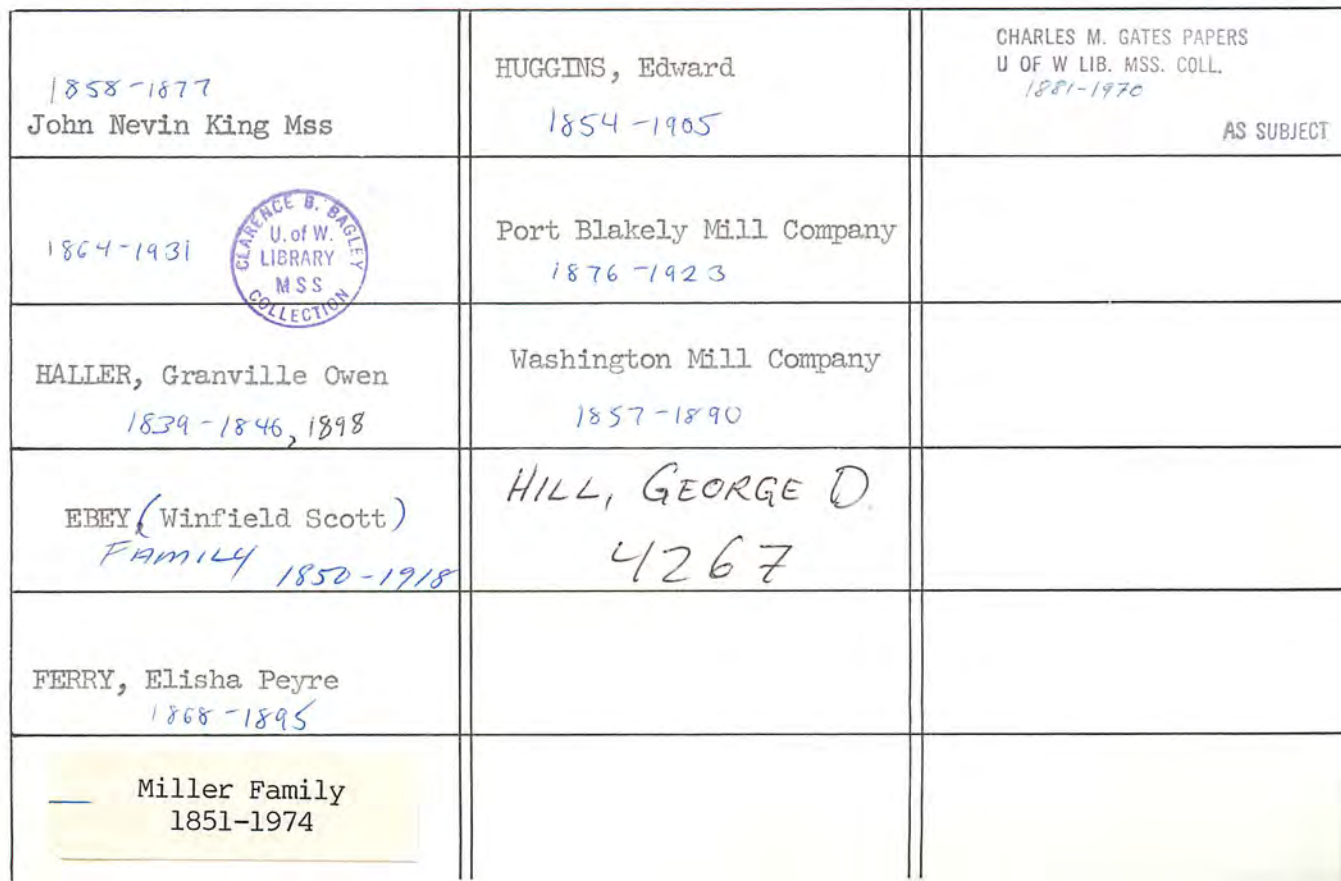 1858-1877
John Nevin King Mss
1864-1931
CLARENCE B. BAGLEY
U. of W.
LIBRARY
MSS
COLLECTION
HALLER, Granville Owen
1839-1846, 1898
EBEY (Winfield Scott)
FAMILY 1850-1918
FERRY, Elisha Peyre
1868-1895
Miller Family
1851-1974
HUGGINS, Edward
1854-1905
Port Blakely Mill Company
1876-1923
Washington Mill Company
1857-1890
HILL, GEORGE D.
4267
CHARLES M. GATES PAPERS
U OF W LIB. MSS. COLL.
1881-1970
AS SUBJECT